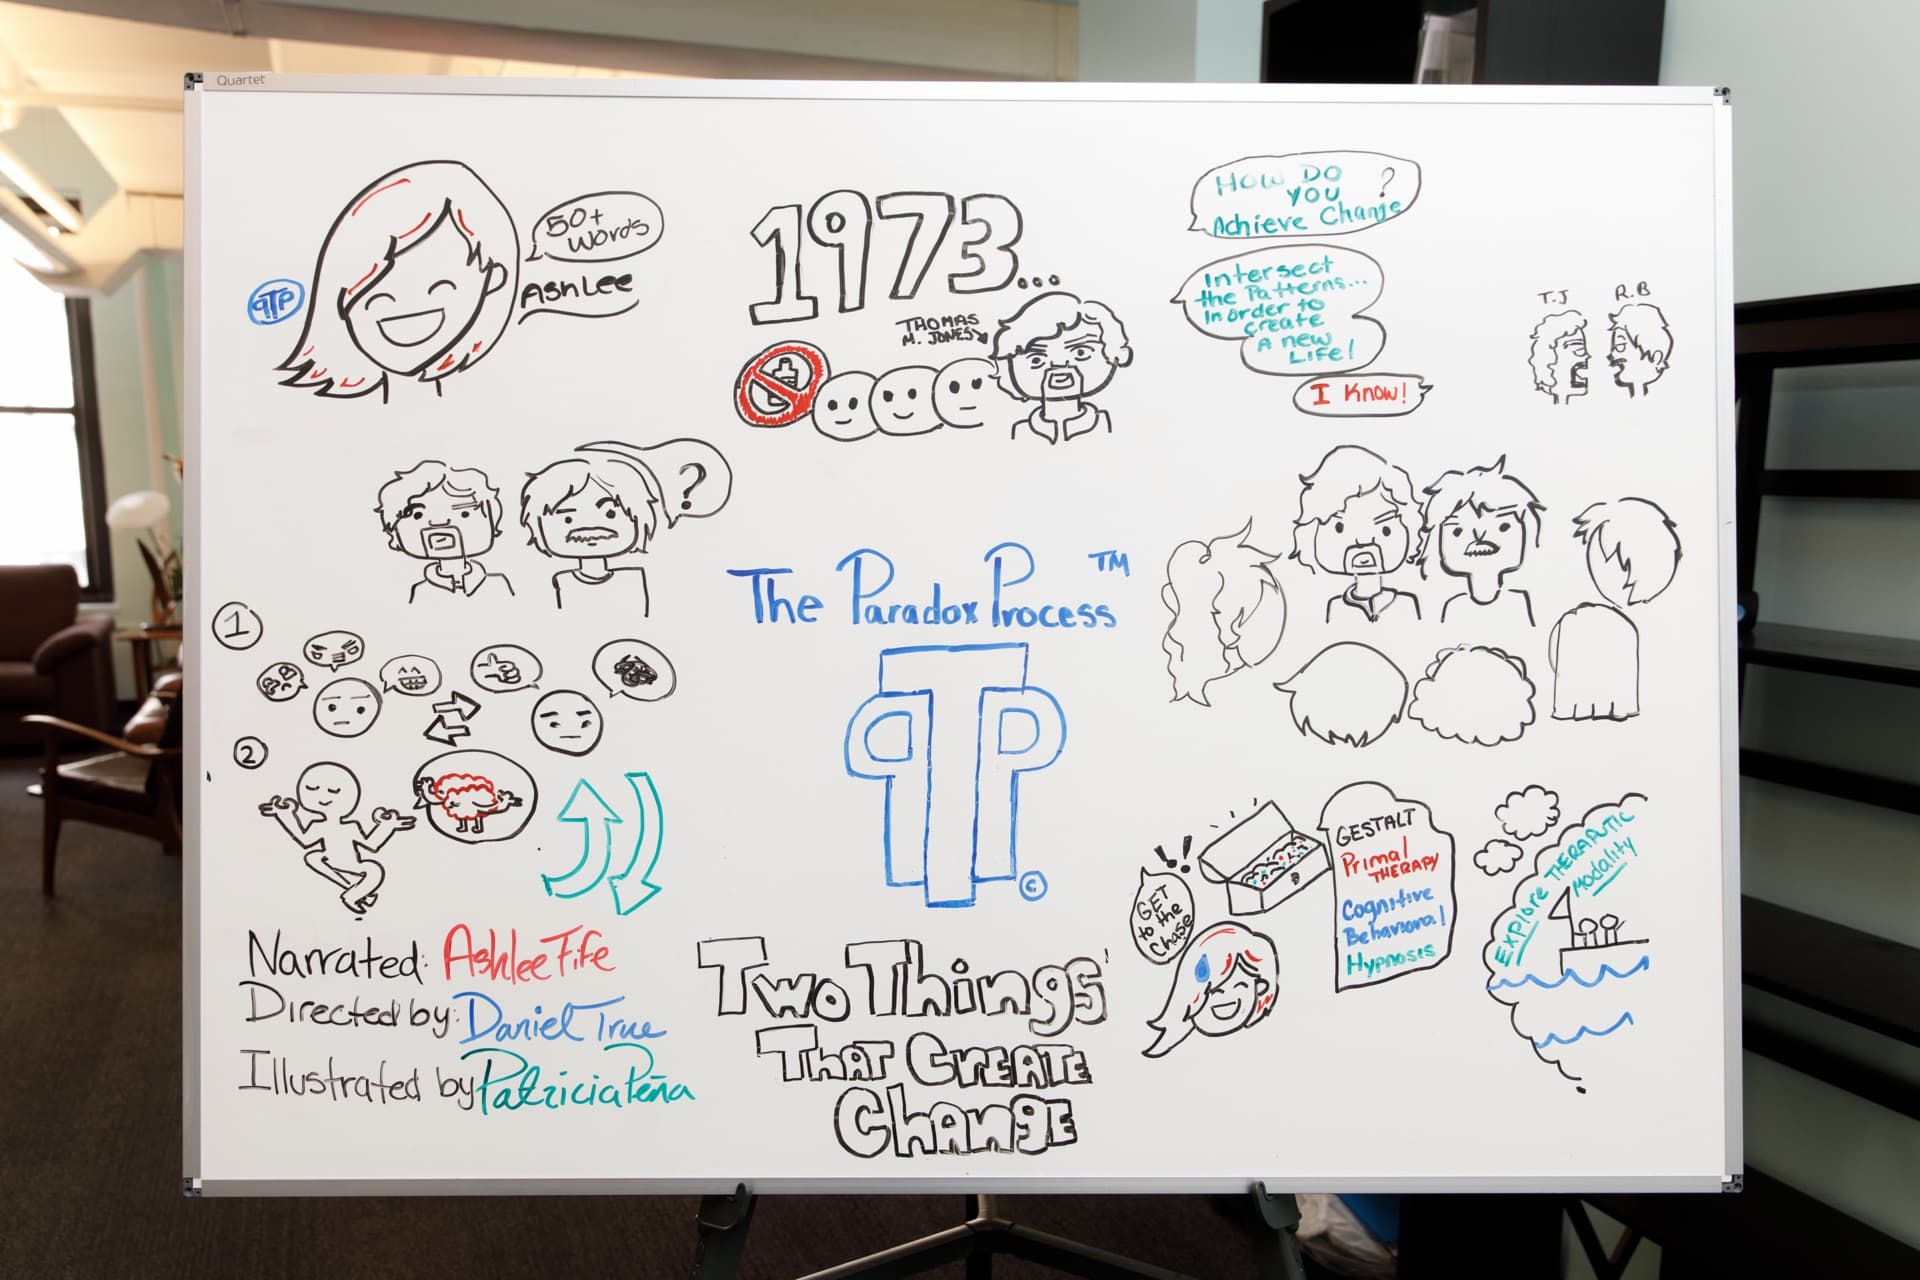 Quartet
50+
Words
AshLee
PTP
1973...
THOMAS
M. JONES
How Do
You ?
Achieve Change
Intersect
the Patterns...
In order to
create
A new
Life!
I Know!
T.J
R.B
?
The Paradox Process ™
PTP
©
1
2
Narrated: Ashlee Fife
Directed by: Daniel True
Illustrated by Patricia Peña
Two Things
That Create
Change
!!
GET
to the
Chase
GESTALT
Primal
THERAPY
Cognitive
Behavioral
Hypnosis
EXPLORE THERAPUTIC
Modality